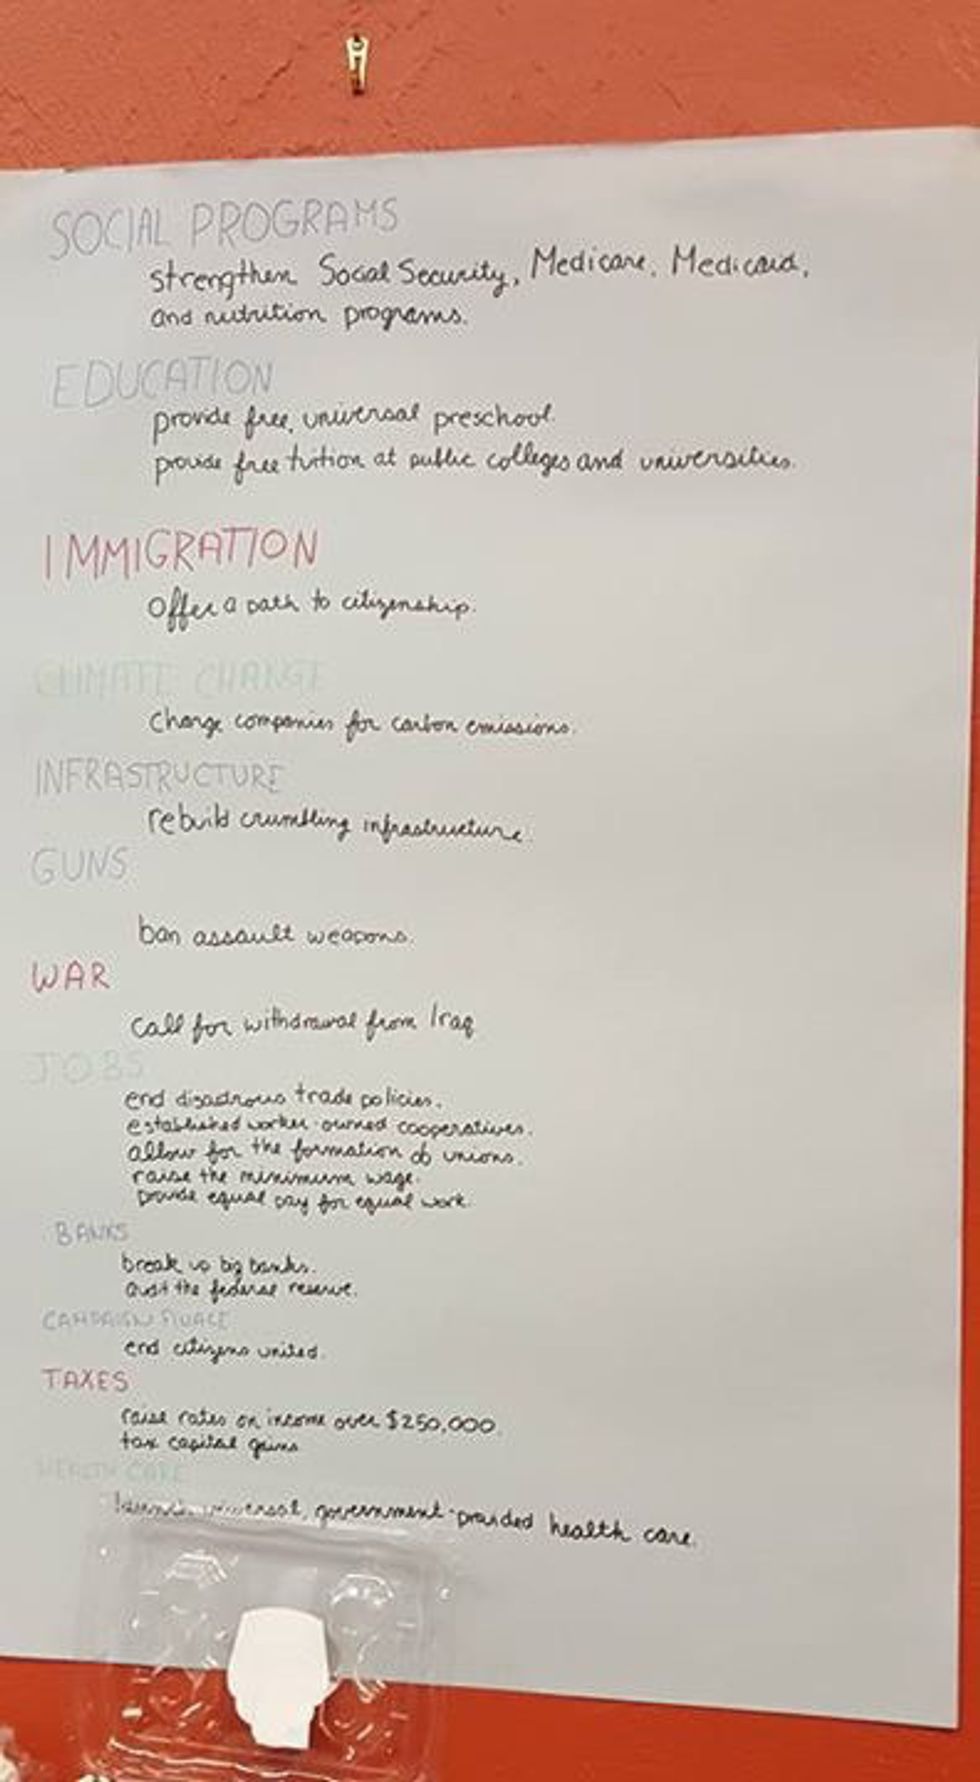 SOCIAL PROGRAMS
strengthen Social Security, Medicare, Medicaid,
and nutrition programs.
EDUCATION
provide free, universal preschool.
provide free tuition at public colleges and universities.
IMMIGRATION
offer a path to citizenship.
CLIMATE CHANGE
charge companies for carbon emissions.
INFRASTRUCTURE
rebuild crumbling infrastructure.
GUNS
ban assault weapons.
WAR
call for withdrawal from Iraq
JOBS
end disastrous trade policies.
established worker-owned cooperatives.
allow for the formation of unions.
raise the minimum wage.
provide equal pay for equal work.
BANKS
break up big banks.
audit the federal reserve.
CAMPAIGN
end citizens united.
TAXES
raise rates on income over $250,000.
tax capital gains
HEALTH CARE
universal, government-provided health care.